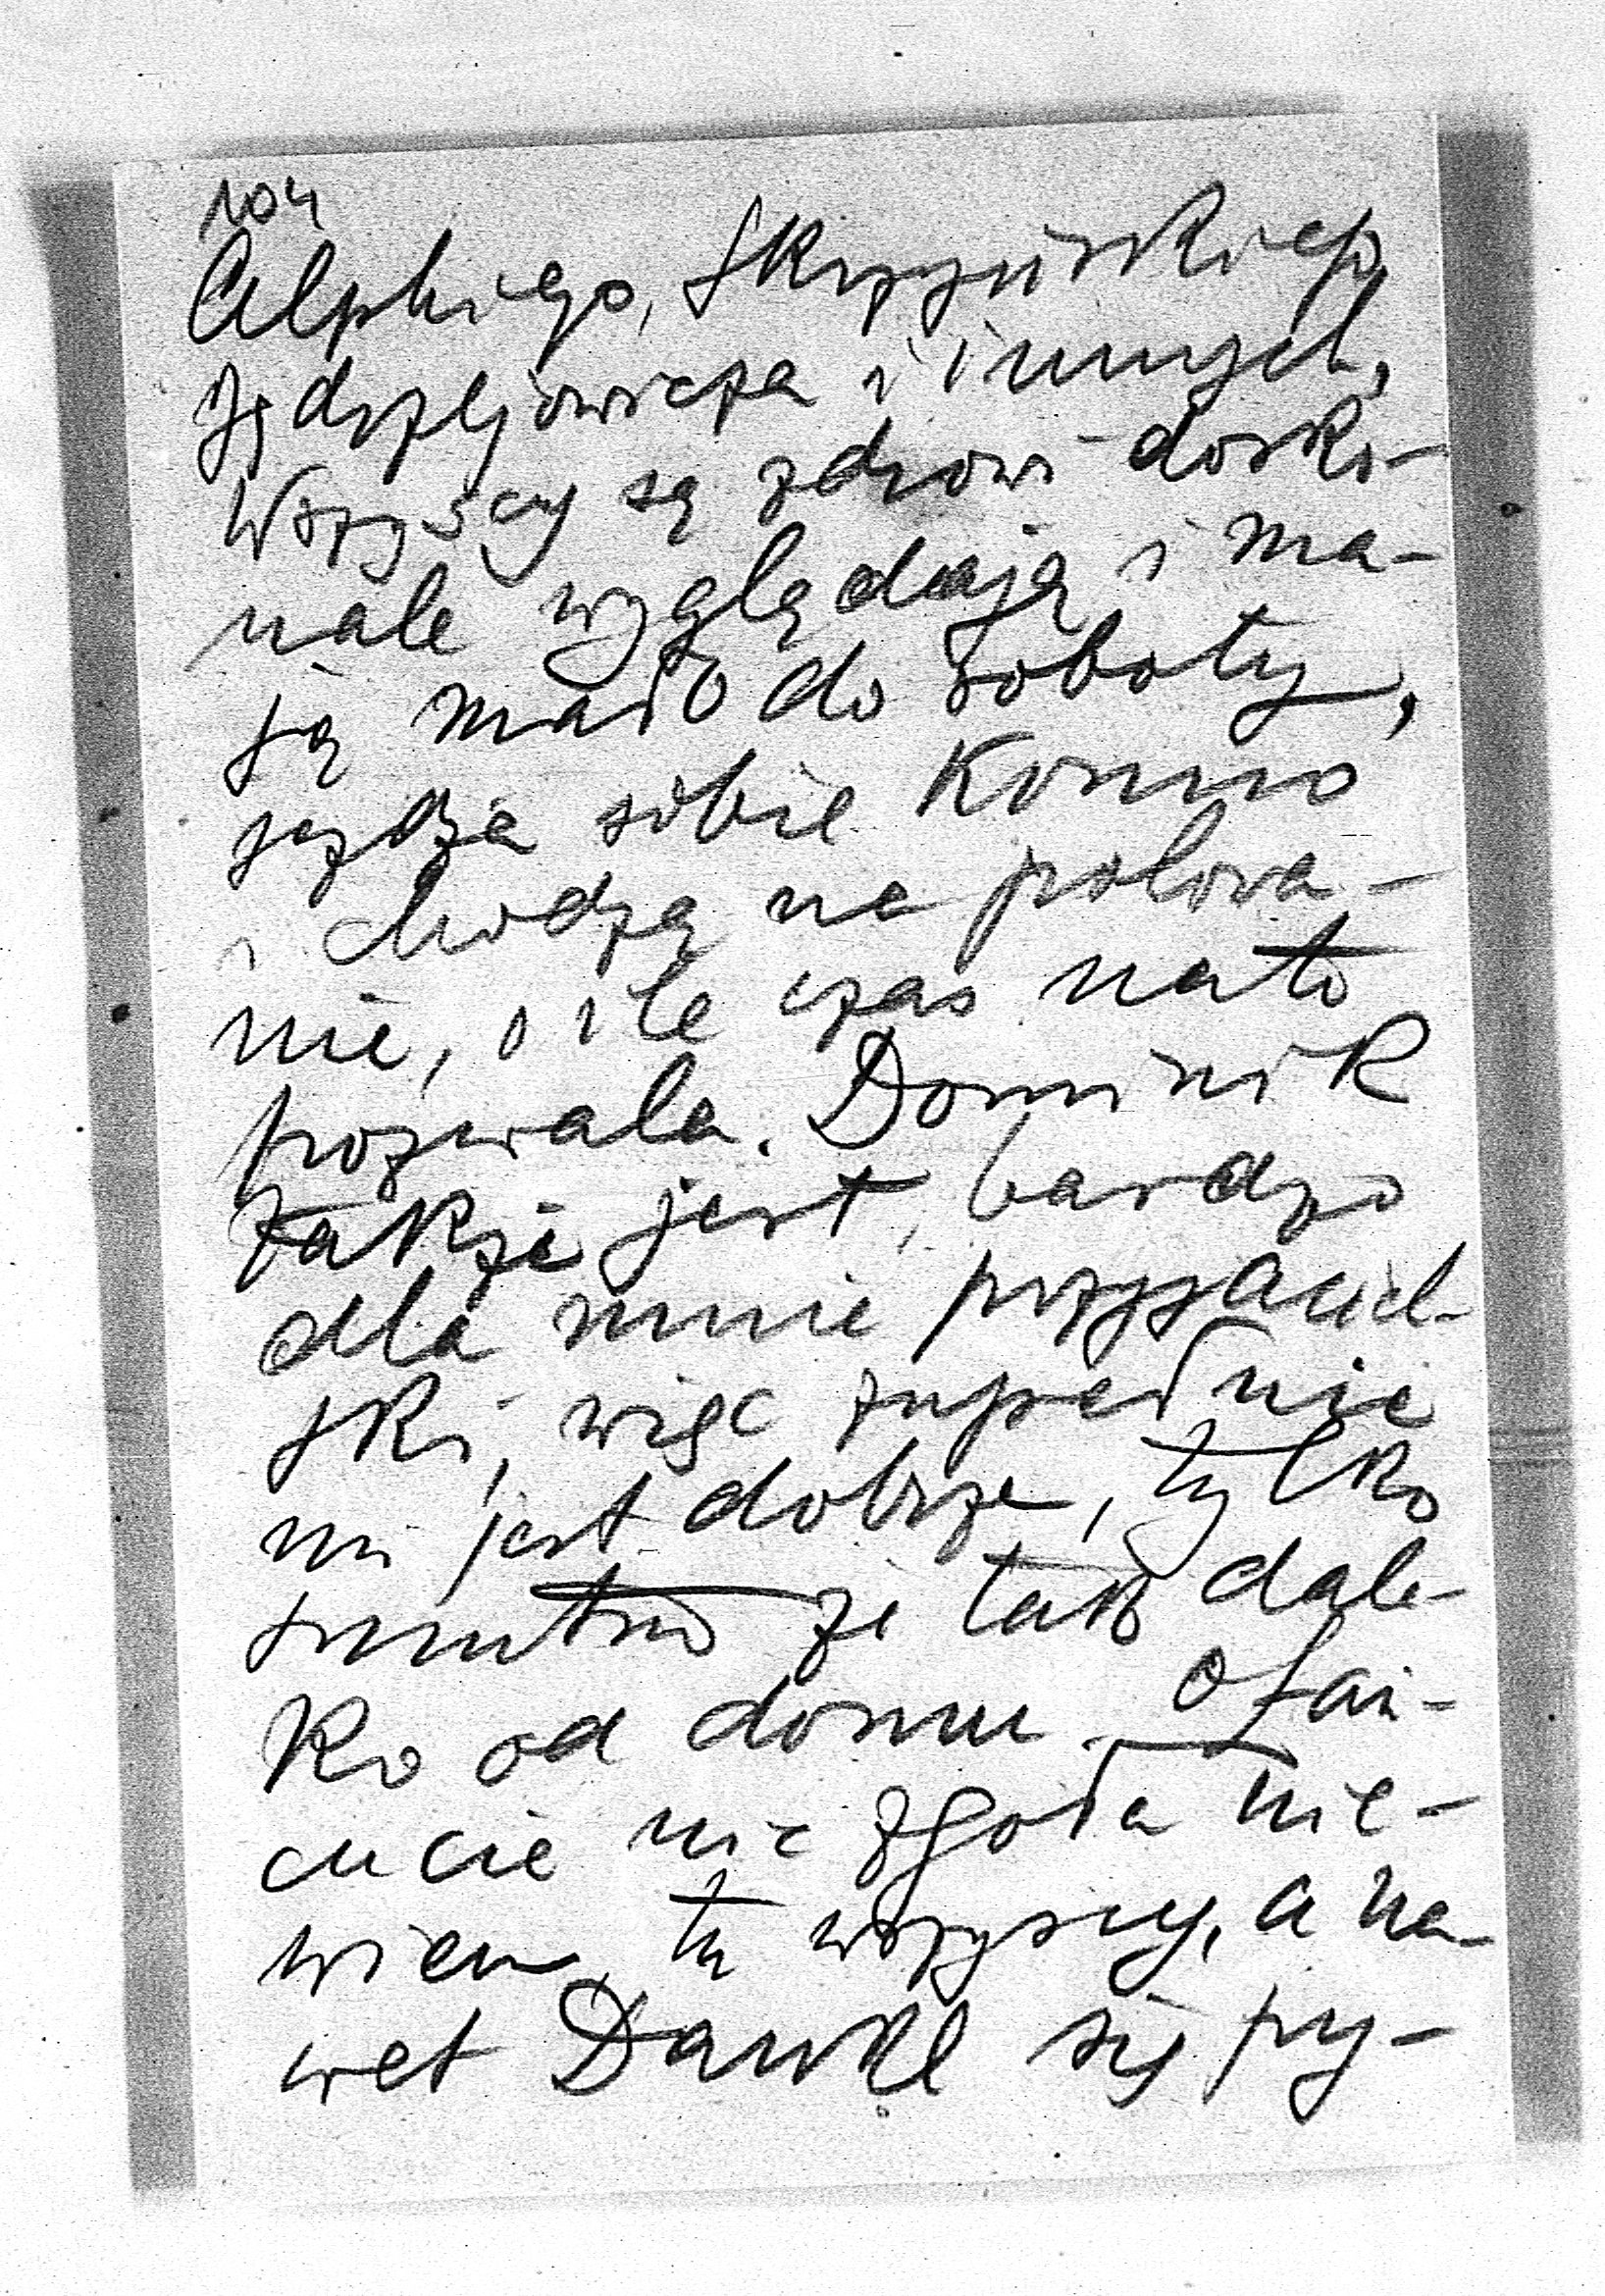 104
Alphiego, Skrzyńskiego,
Jędrzejowicza i innych,
Wszyscy są zdrowi dosko-
nale wyglądają i ma-
ją mało do roboty,
jeżdżą sobie Konno
i chodzą na polowa-
nie, o ile czas na to
pozwala. Dominik
także jest bardzo
dla mnie przyjaciel-
ski, więc zupełnie
mi jest dobrze, tylko
smutno że tak dale-
ko od domu. O Łań-
cucie nic zgoła nie-
wiem, tu wszyscy, a na-
wet Dankl się py-